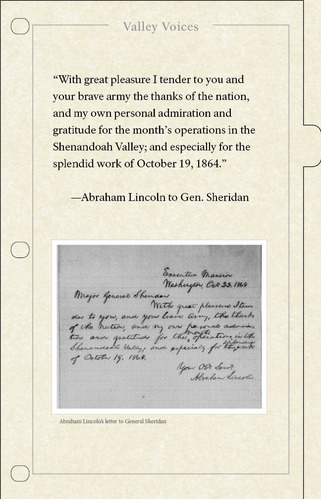 Valley Voices
“With great pleasure I tender to you and
your brave army the thanks of the nation,
and my own personal admiration and
gratitude for the month’s operations in the
Shenandoah Valley; and especially for the
splendid work of October 19, 1864.”
—Abraham Lincoln to Gen. Sheridan
Executive Mansion
Washington, Oct. 22. 1864
Major General Sheridan
With great pleasure I ten
der to you, and your brave army, the thanks
of the Nation, and my own personal admira-
tion and gratitude for the month's operations in the
Shenandoah Valley; and especially for the splendid work
of October 19. 1864.
Your Obt Servt
Abraham Lincoln
Abraham Lincoln's letter to General Sheridan